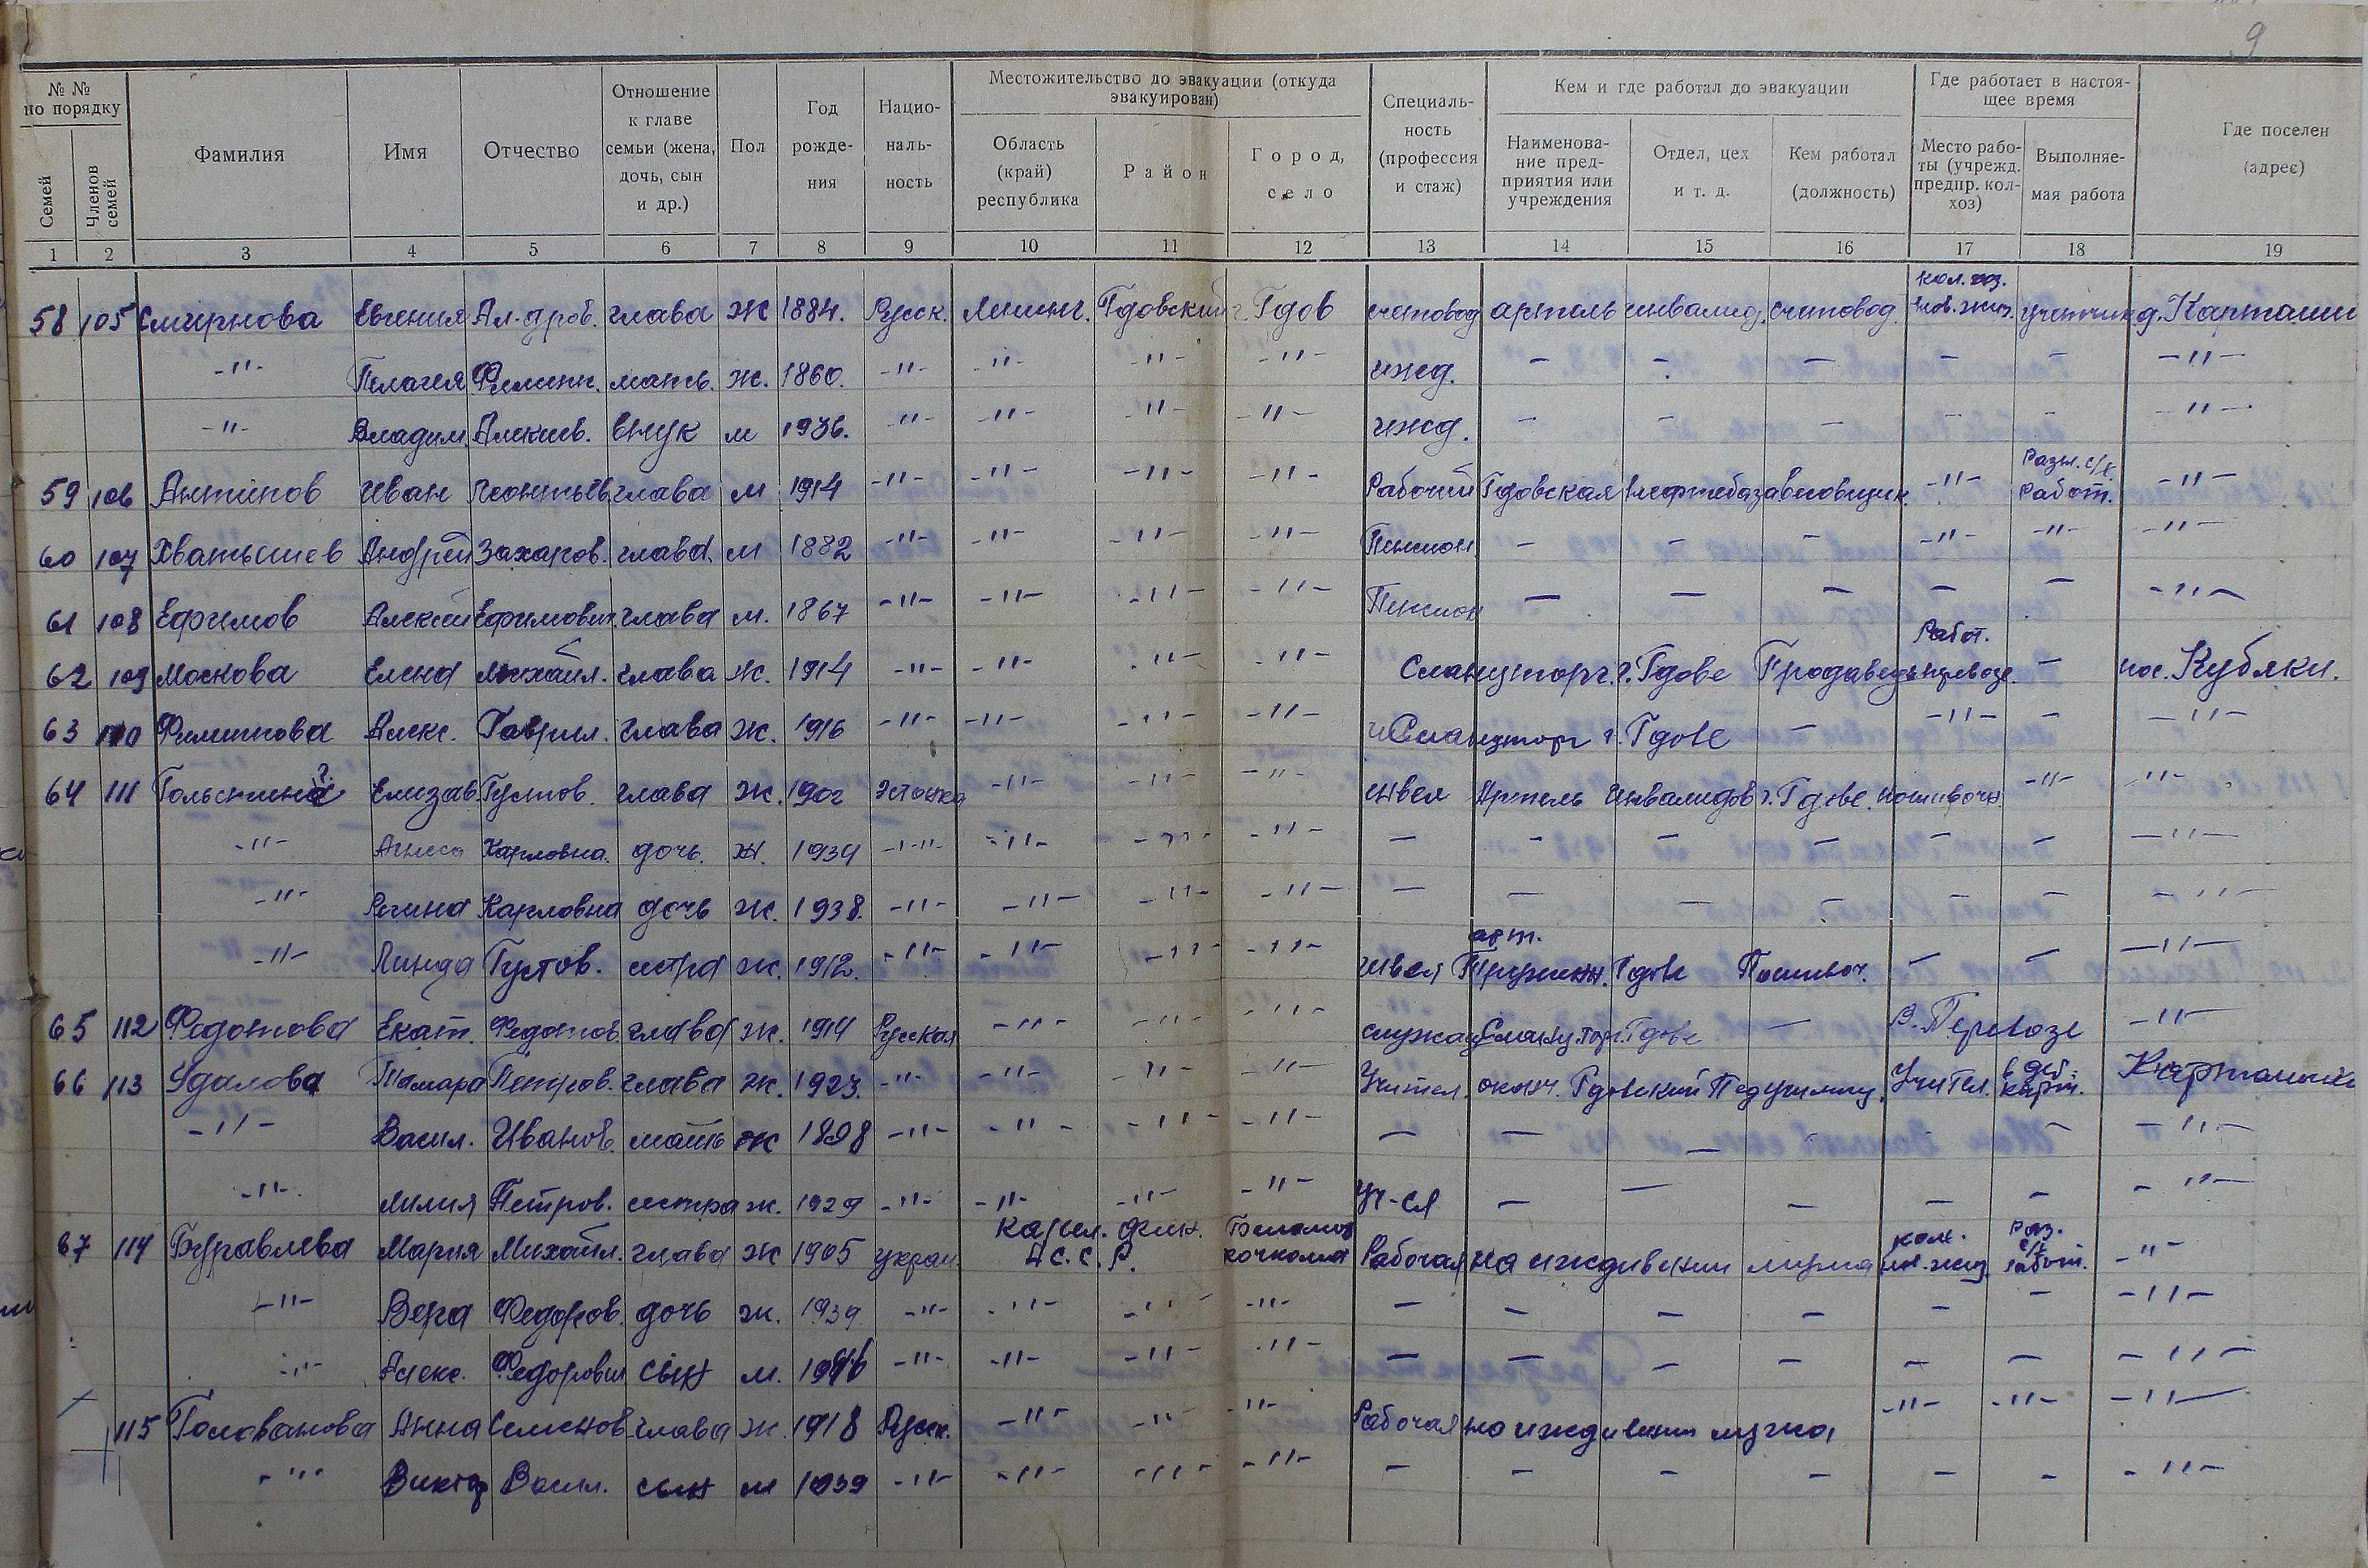 9
№ № по порядку | Фамилия | Имя | Отчество | Отношение к главе семьи (жена, дочь, сын и др.) | Пол | Год рожде- ния | Нацио- наль- ность | Местожительство до эвакуации (откуда эвакуирован) | Специаль- ность (профессия и стаж) | Кем и где работал до эвакуации | Где работает в настоя- щее время | Где поселен (адрес)
Семей | Членов семей | Область (край) республика | Район | Город, село | Наименова- ние пред- приятия или учреждения | Отдел, цех и т. д. | Кем работал (должность) | Место рабо- ты (учрежд. предпр. кол- хоз) | Выполняе- мая работа
1 2 3 4 5 6 7 8 9 10 11 12 13 14 15 16 17 18 19
58 105 Смирнова Евгения Ал-дров. глава Ж 1884. Русск. Ленинг. Гдовский г. Гдов счетовод артель инвалид. счетовод. кол.хоз. Нов. жизн. учетчик д. Карташи
-"- Пелагея Филипп. мать. ж. 1860. -"- -"- -"- -"- ижд. - - - - - -"-
-"- Владим. Алексеев. внук м 1936. -"- -"- -"- -"- ижд. - - - - - -"-
59 106 Антипов Иван Леонтьев. глава м 1914 -"- -"- -"- -"- Рабочий Гдовская Нефтебаза весовщик. -"- Разн. с/х. работ. -"-
60 107 Хватышев Андрей Захаров. глава. м 1882 -"- -"- -"- -"- Пенсион - - - -"- -"- -"-
61 108 Ефимов Алексей Ефимович. глава м. 1867 -"- -"- -"- -"- Пенсион - - - - - -"-
62 109 Москова Елена Михайл. глава Ж. 1914 -"- -"- -"- -"- Сланцторг. г. Гдове Продавец Работ. в перевозе. - пос. Кубяки.
63 110 Филиппова Алекс. Гаврил. глава Ж. 1916 -"- -"- -"- -"- Сланцторг г. Гдове - -"- - -"-
64 111 Елизав. Густов. глава Ж. 1902 Эстонка -"- -"- -"- швея Артель Инвалидов г. Гдове. пошивочн. -"- -"-
-"- Агнесса Карловна. дочь. Ж. 1934 -"- -"- -"- -"- - - - - - - -"-
-"- Регина Карловна дочь Ж. 1938. -"- -"- -"- -"- - - - - - - -"-
-"- Линда Густов. сестра ж. 1912. -"- -"- -"- -"- швея арт. Гдове Пошивоч. - - -"-
65 112 Федотова Екат. Федотов. глава ж. 1914 Русская -"- -"- -"- служащ Сланцторг. Гдове - В. Перевозе -"-
66 113 Удалова Тамара Петров. глава Ж. 1923. -"- -"- -"- -"- Учител. оконч. Гдовский Педучилищ. Учител. в дет. Карташи
-"- Васил. Иванов. мать Ж 1898 -"- -"- -"- -"- - - - - - - -"-
-"- Лилия Петров. сестра ж. 1929 -"- -"- -"- -"- Уч-ся - - - - - -"-
67 114 Буравлева Мария Михайл. глава Ж 1905 украин. Карел. Фин. А С.С.Р. Рабочая на иждивении мужа кол. нов. жиз. раз. с/х работ. -"-
-"- Вера Федоров. дочь ж. 1939 -"- -"- -"- -"- - - - - - - -"-
-"- Алекс. Федорович сын м. -"- -"- -"- -"- - - - - - - -"-
115 Голованова Анна Семенов. глава Ж. 1918 Русск. -"- -"- -"- Рабочая на иждивении мужа -"- -"- -"-
-"- Виктор Васил. сын м 1939 -"- -"- -"- -"- - - - - - - -"-